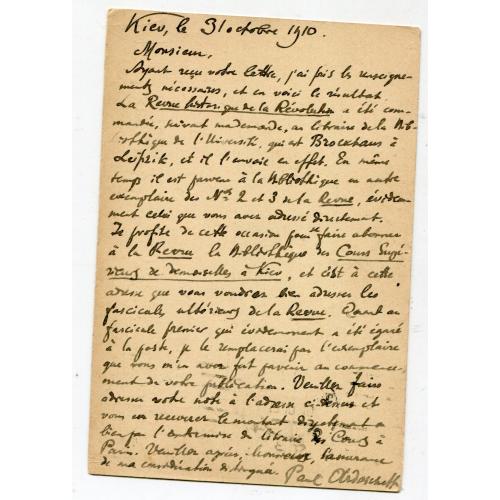 Kiev, le 31 octobre 1910.
Monsieur,
Ayant reçu votre lettre, j'ai fais les renseigne-
ments nécessaires, et en voici le résultat.
La Revue historique de la Révolution a été com-
mandée, suivant ma demande, au libraire de la Bib-
liothèque de l'Université, qui est Brockhaus à
Leipzik, et il l'envoie en effet. En même
temps il est parvenu à la Bibliothèque un autre
exemplaire des Nos 2 et 3 de la Revue, évidem-
ment celui que vous avez adressé directement.
Je profite de cette occasion pour faire abonner
à la Revue la Bibliothèque des Cours Supé-
rieurs de demoiselles à Kiev, et c'est à cette
adresse que vous voudrez bien adresser les
fascicules ultérieurs de la Revue. Quant au
fascicule premier qui évidemment a été égaré
à la poste, je le remplacerai par l'exemplaire
que vous m'avez fait parvenir au commence-
ment de votre publication. Veuillez faire
adresser votre note à l'adresse ci-dessus et
vous en recevrez le montant directement ou
bien par l'entremise du libraire des Cours à
Paris. Veuillez agréer, Monsieur, l'assurance
de ma considération distinguée. Paul Ardascheff